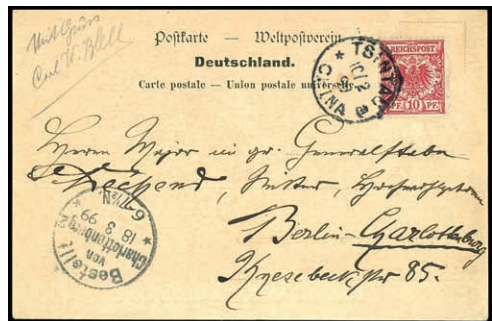 Mit Gruss
Carl W. Bell
Postkarte — Weltpostverein
Deutschland.
Carte postale — Union postale universelle
TSINTAU
10/2
99
CHINA
REICHSPOST
PF. 10 PF.
Herrn Major im gr. Generalstabe
Ritter, Hochwohlgeboren
Berlin-Charlottenburg
Knesebeckstr 85.
Bestellt
vom
Charlottenburg 2
18 3 99
6-7½N